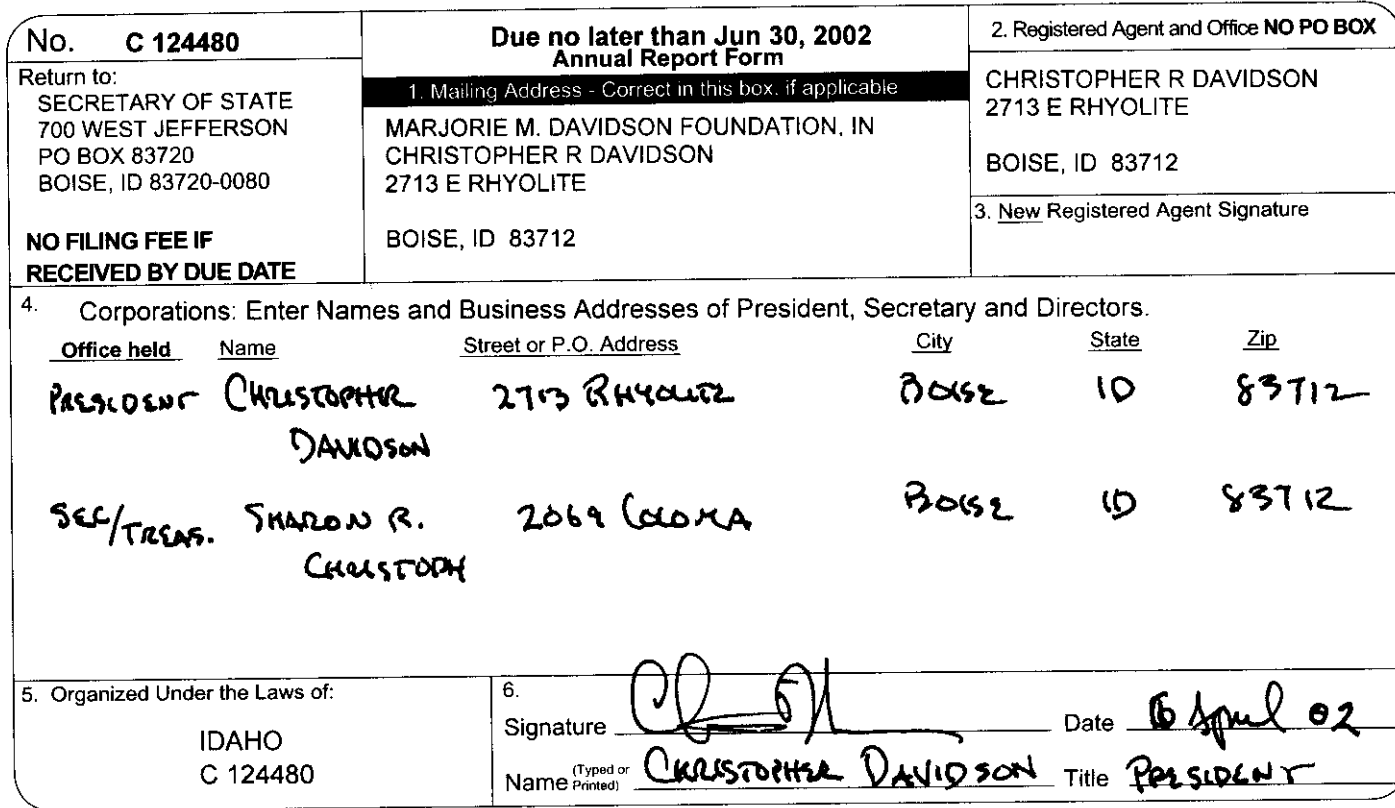 No. C 124480
Return to:
SECRETARY OF STATE
700 WEST JEFFERSON
PO BOX 83720
BOISE, ID 83720-0080
NO FILING FEE IF
RECEIVED BY DUE DATE
Due no later than Jun 30, 2002
Annual Report Form
1. Mailing Address - Correct in this box. if applicable
MARJORIE M. DAVIDSON FOUNDATION, IN
CHRISTOPHER R DAVIDSON
2713 E RHYOLITE
BOISE, ID 83712
2. Registered Agent and Office NO PO BOX
CHRISTOPHER R DAVIDSON
2713 E RHYOLITE
BOISE, ID 83712
3. New Registered Agent Signature
4. Corporations: Enter Names and Business Addresses of President, Secretary and Directors.
Office held Name Street or P.O. Address City State Zip
PRESIDENT CHRISTOPHER 2713 RHYOLITE BOISE ID 83712
DAVIDSON
SEC/TREAS. SHARON R. 2069 COLOMA BOISE ID 83712
CHRISTOPH
5. Organized Under the Laws of:
IDAHO
C 124480
6.
Signature Date April 02
Name (Typed or Printed) CHRISTOPHER DAVIDSON Title PRESIDENT